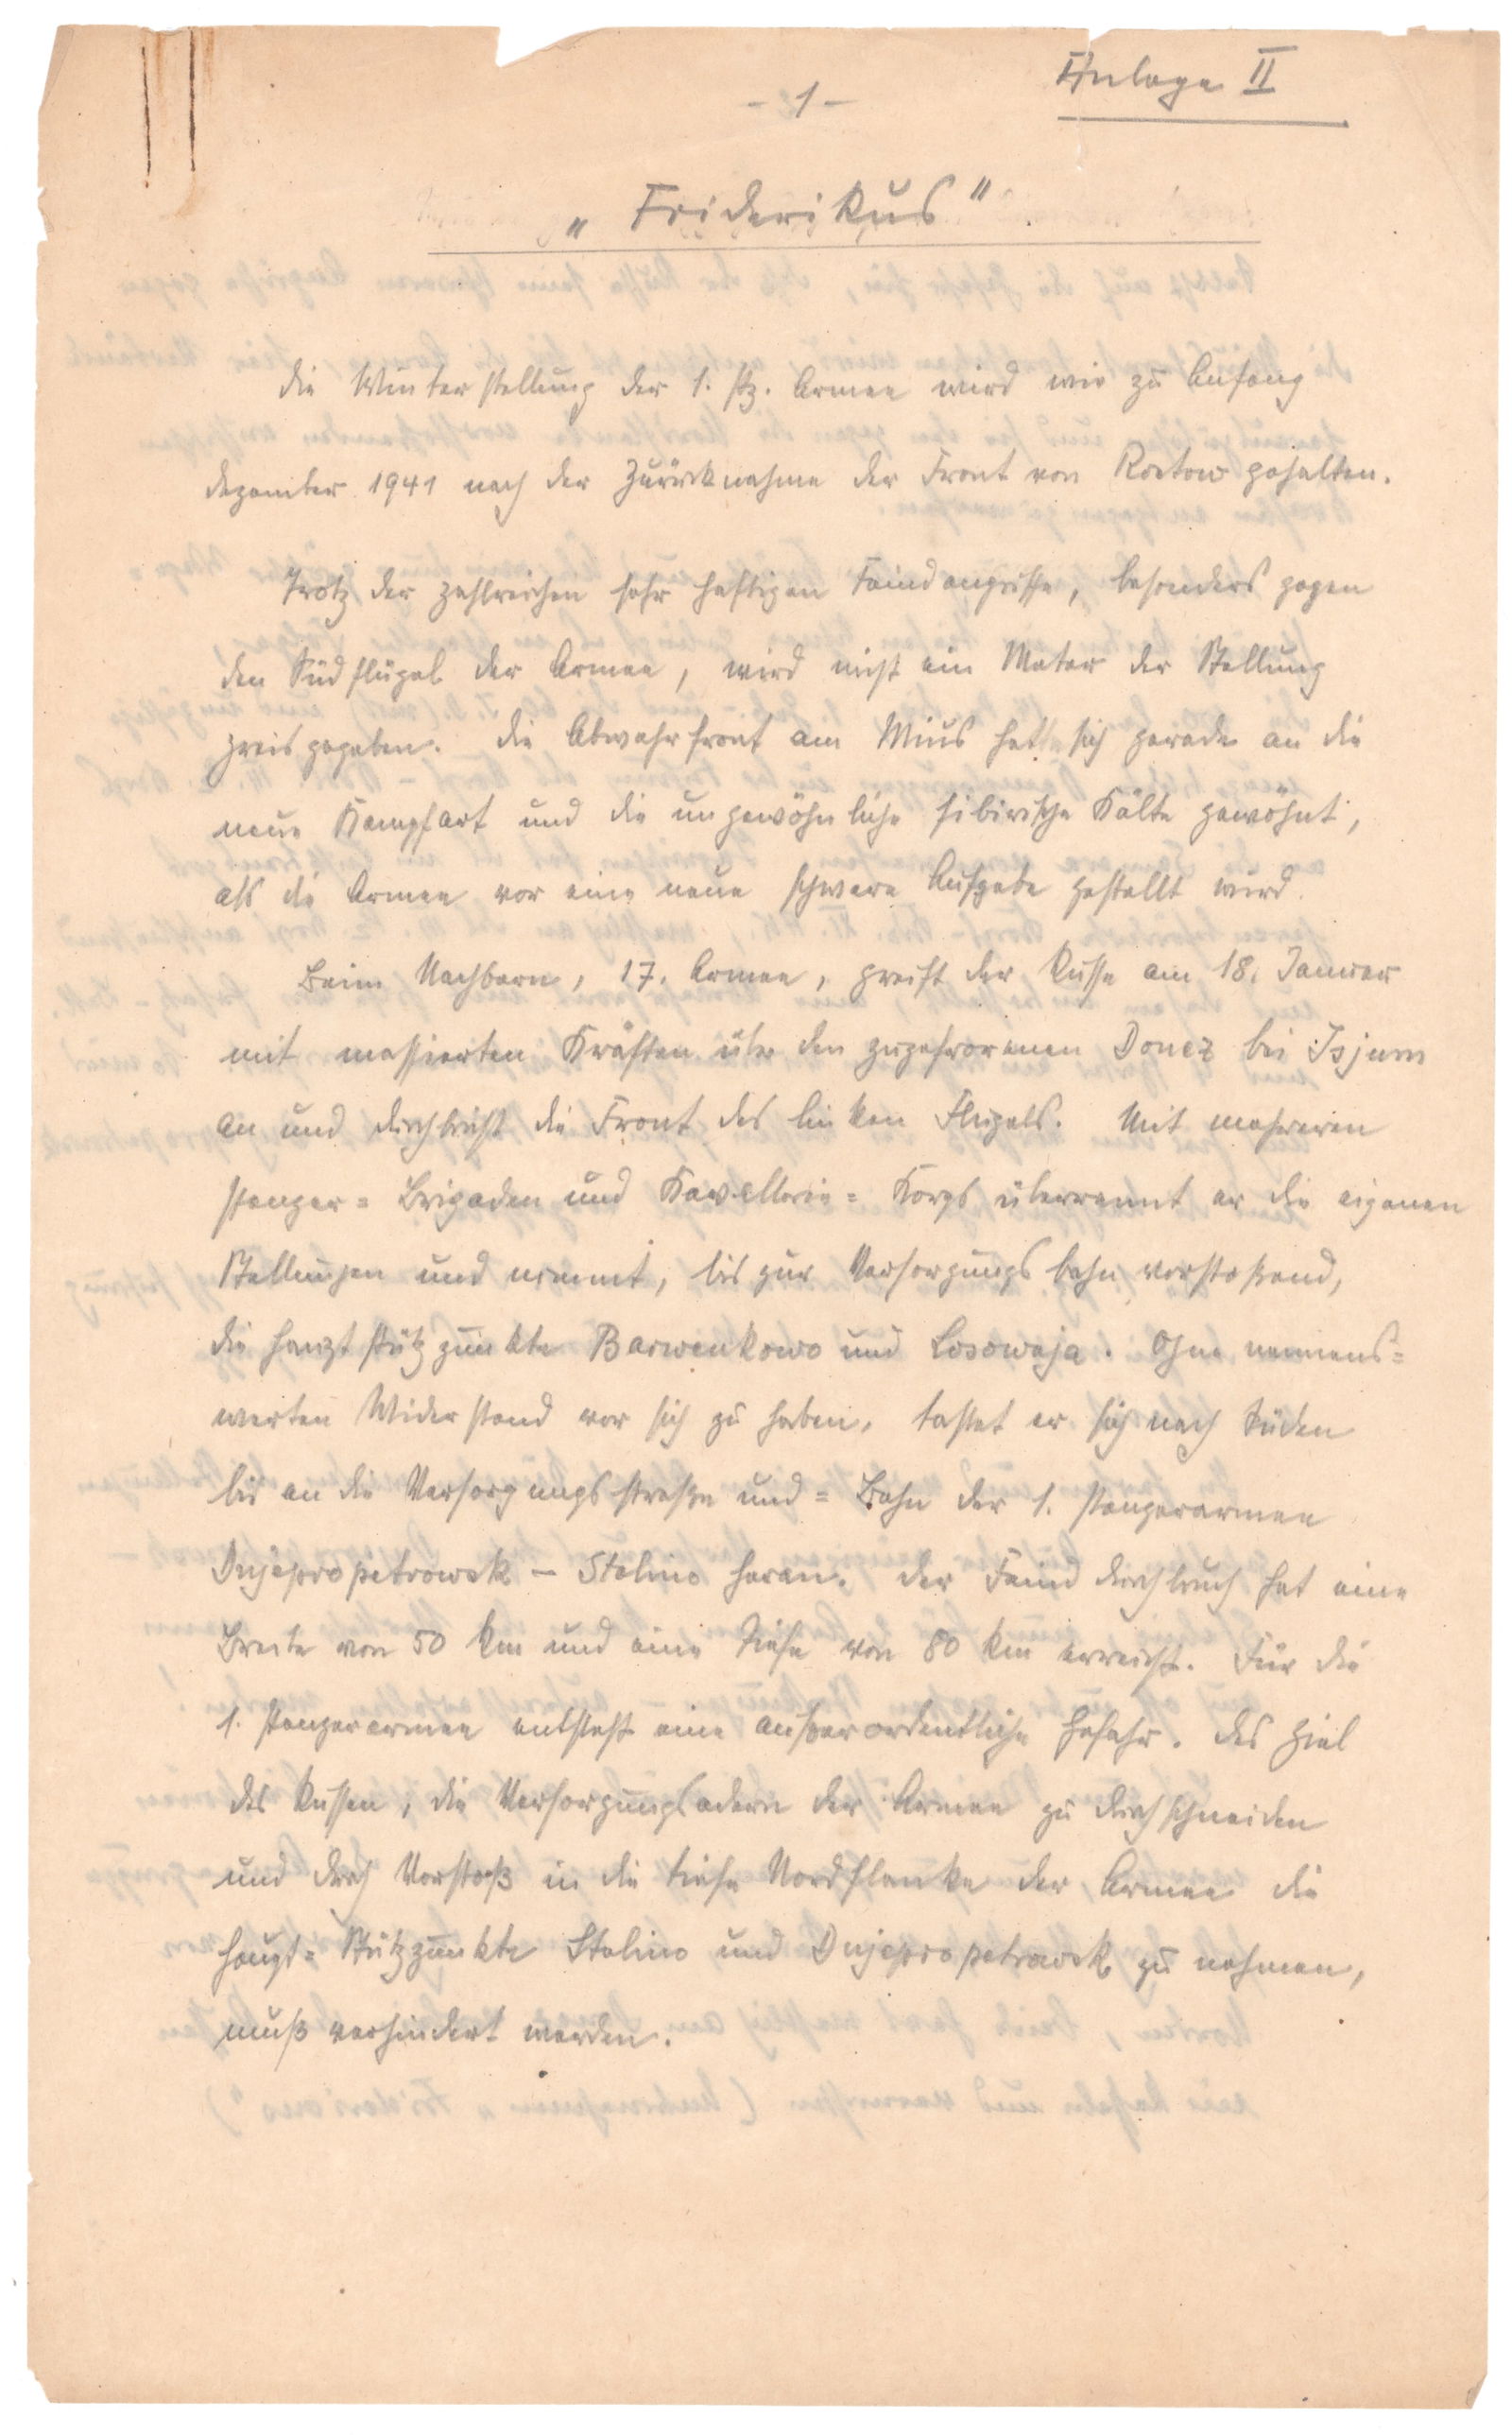 Anlage II
- 1 -
„Friderikus"
Die Winterstellung der 1. Pz. Armee wird wie zu Anfang
Dezember 1941 nach der Zurücknahme der Front von Rostow gehalten.
Trotz der zahlreichen sehr heftigen Feindangriffe, besonders gegen
den Südflügel der Armee, wird nicht ein Meter der Stellung
preisgegeben. Die Abwehrfront am Mius hat sich gerade an die
neue Kampfart und die ungewöhnliche sibirische Kälte gewöhnt,
als die Armee vor eine neue schwere Aufgabe gestellt wird.
Beim Nachbarn, 17. Armee, greift der Russe am 18. Januar
mit massierten Kräften über den zugefrorenen Donez bei Isjum
an und durchbricht die Front des linken Flügels. Mit mehreren
Panzer= Brigaden und Kavallerie= Korps überrennt er die eigenen
Stellungen und nimmt, bis zur Versorgungsbahn vorstoßend,
die Hauptstützpunkte Barwenkowo und Losowaja. Ohne nennens=
werten Widerstand vor sich zu haben, tastet er sich nach Süden
bis an die Versorgungsstraße und = Bahn der 1. Panzerarmee
Dnjepropetrowsk – Stalino heran. Der Feinddurchbruch hat eine
Breite von 50 km und eine Tiefe von 80 km erreicht. Für die
1. Panzerarmee entsteht eine außerordentliche Gefahr. Das Ziel
des Russen, die Versorgungsadern der Armee zu durchschneiden
und durch Vorstoß in die tiefe Nordflanke der Armee die
Haupt= Stützpunkte Stalino und Dnjepropetrowsk zu nehmen,
muß verhindert werden.